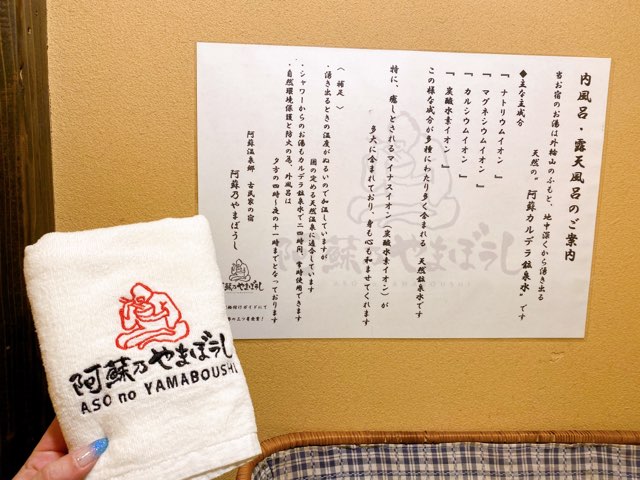 内風呂・露天風呂のご案内
当お宿のお湯は外輪山のふもと、地中深くから湧き出る
天然の“阿蘇カルデラ鉱泉水”です
◆主な主成分
『ナトリウムイオン』
『マグネシウムイオン』
『カルシウムイオン』
『炭酸水素イオン』
この様な成分が多種にわたり多く含まれる 天然鉱泉水です
特に、癒しとされるマイナスイオン(炭酸水素イオン)が
多大に含まれており、身も心も和ませてくれます
〈補足〉
・湧き出るときの温度がぬるいので加温していますが
国の定める天然温泉に適合しています
・シャワーからのお湯もカルデラ鉱泉水で二四時間、常時使用できます
・自然環境保護と防火の為、外風呂は
夕方の四時~夜の十一時までとなっております
阿蘇温泉郷 古民家の宿
阿蘇乃やまぼうし
阿蘇乃やまぼうし
ASO no YAMABOUSHI
阿蘇乃やまぼうし
ASO no YAMABOUSHI